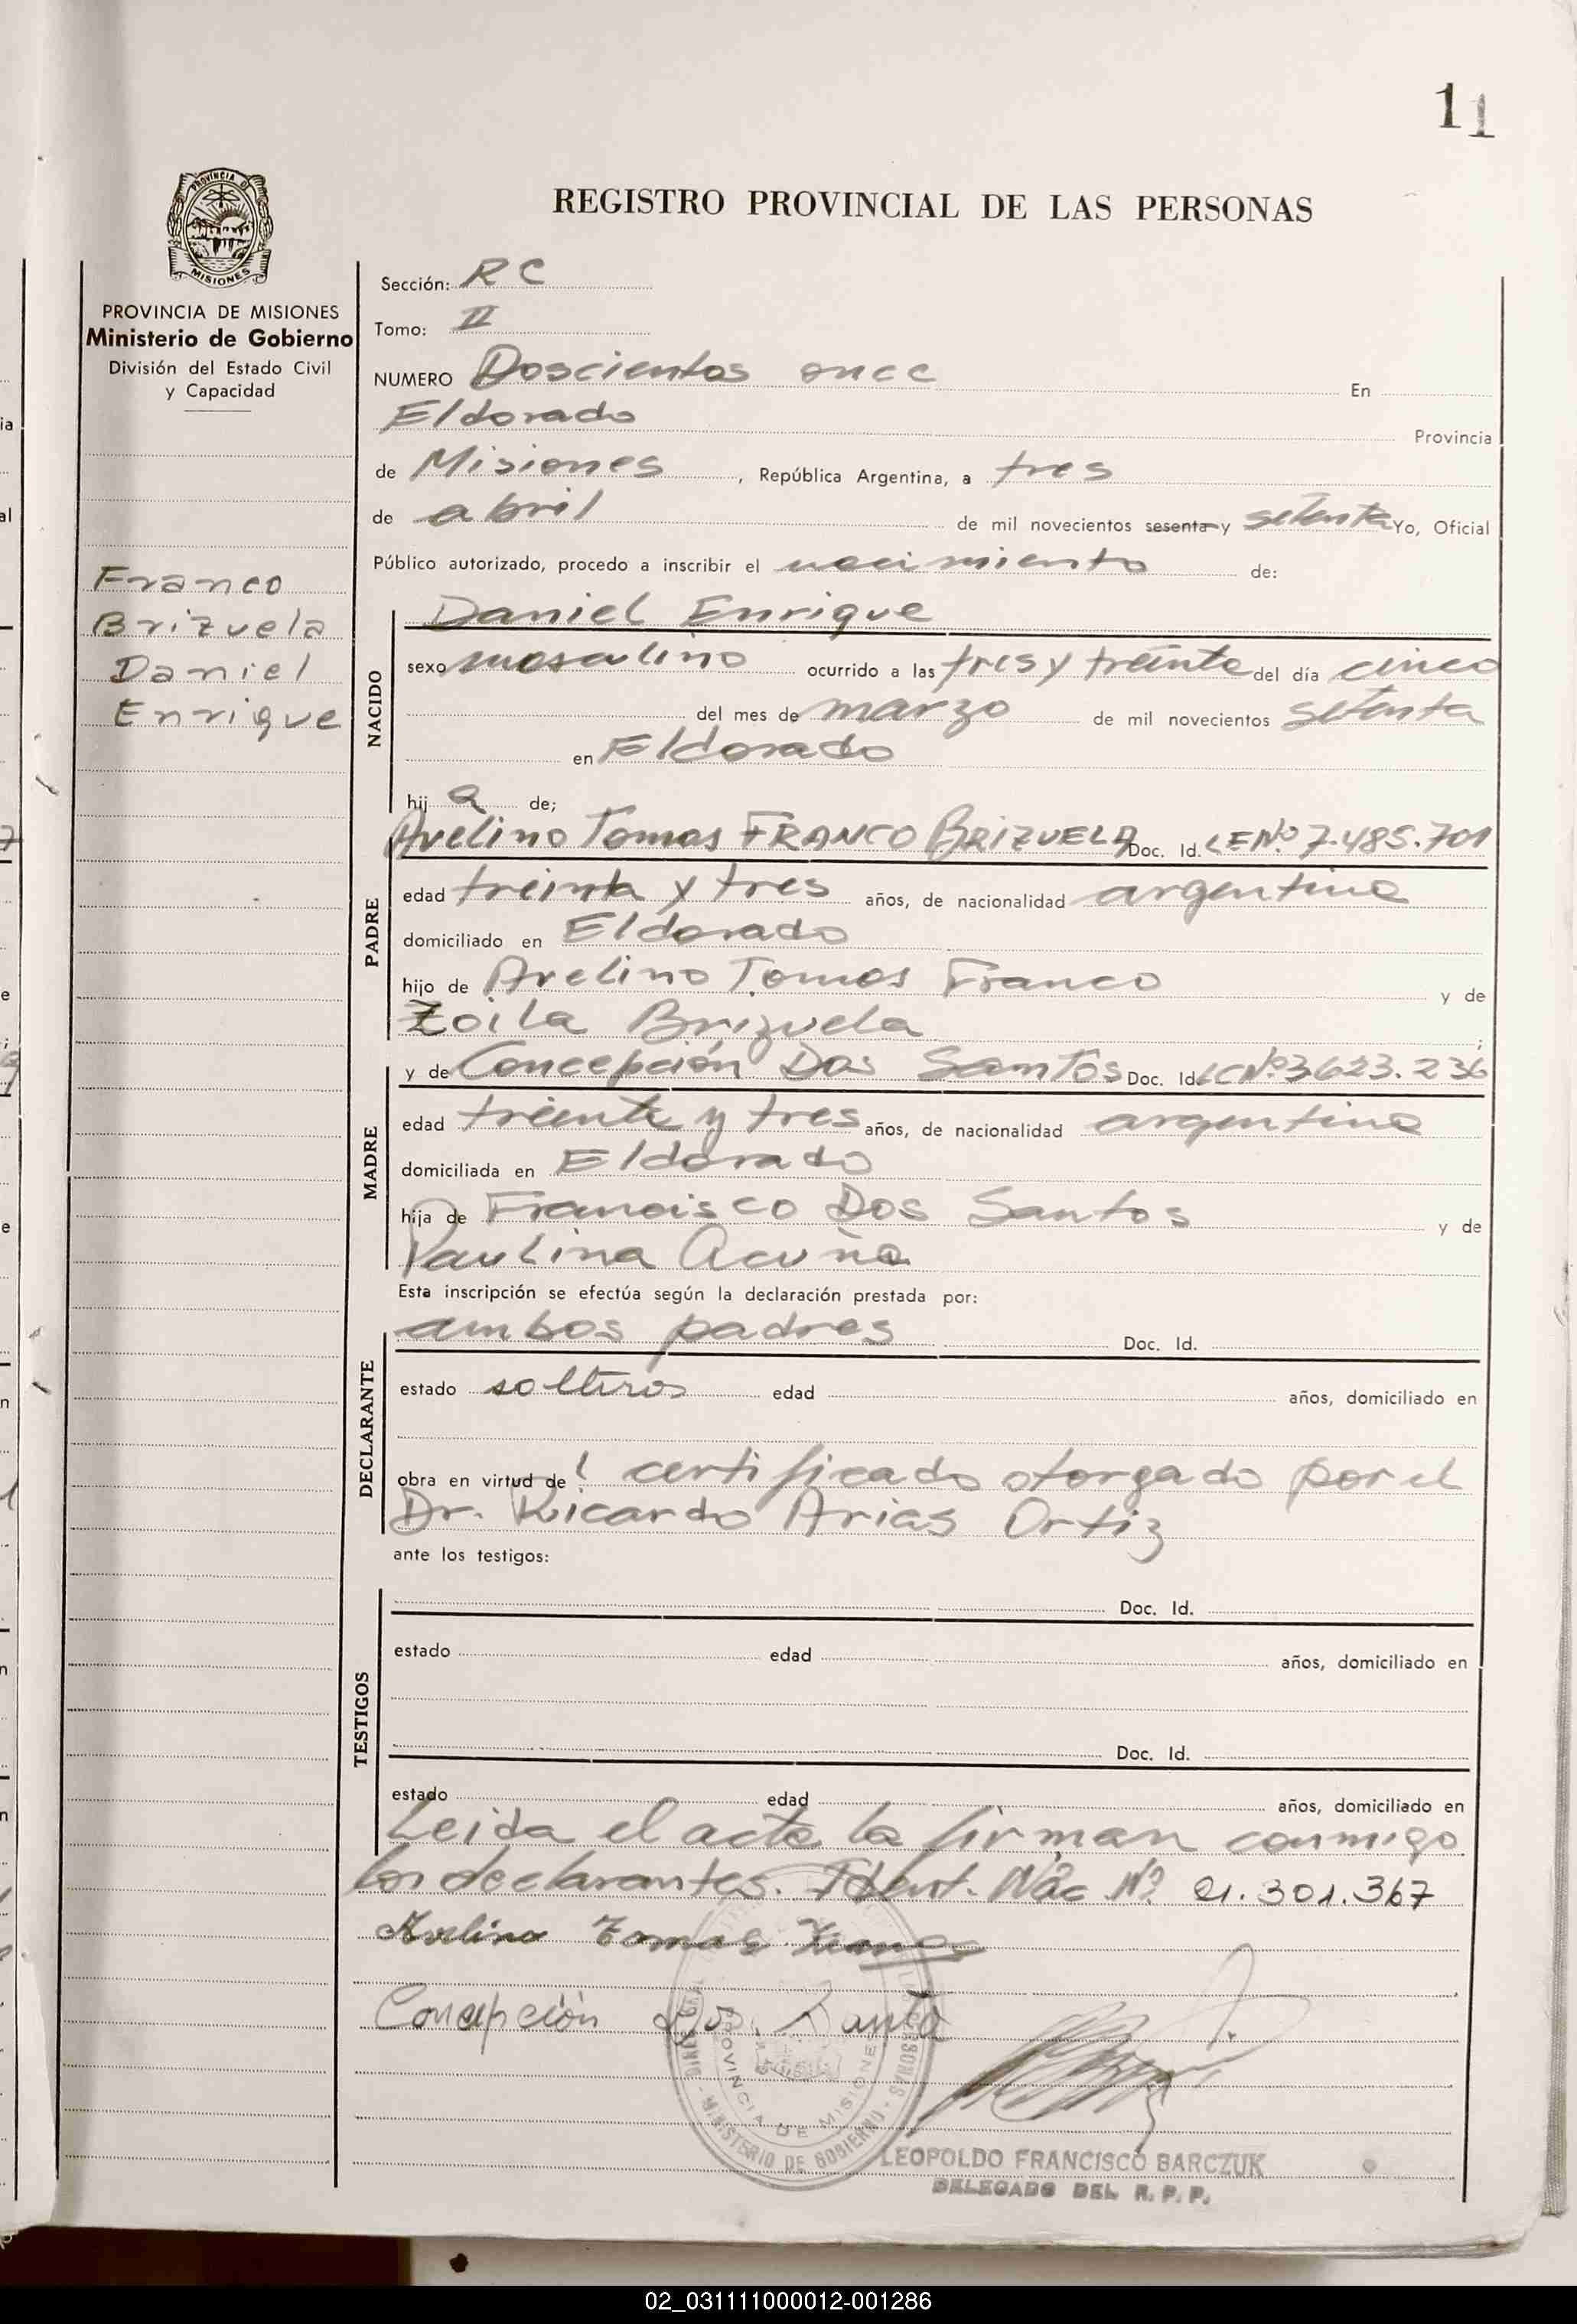 11
REGISTRO PROVINCIAL DE LAS PERSONAS
PROVINCIA DE
MISIONES
PROVINCIA DE MISIONES
Ministerio de Gobierno
División del Estado Civil
y Capacidad
Franco
Brizuela
Daniel
Enrique
Sección: R C
Tomo: II
NUMERO Doscientos once En
Eldorado Provincia
de Misiones, República Argentina, a tres
de abril de mil novecientos sesenta y setenta Yo, Oficial
Público autorizado, procedo a inscribir el nacimiento de:
NACIDO
Daniel Enrique
sexo masculino ocurrido a las tres y treinta del día cinco
del mes de marzo de mil novecientos setenta
en Eldorado
hij a de;
PADRE
Avelino Tomas FRANCO BRIZUELA Doc. Id. LE Nº 7.485.701
edad treinta y tres años, de nacionalidad argentina
domiciliado en Eldorado
hijo de Avelino Tomas Franco y de
Zoila Brizuela ;
MADRE
y de Concepción Dos Santos Doc. Id. LC Nº 3623.236
edad treinta y tres años, de nacionalidad argentina
domiciliada en Eldorado
hija de Francisco Dos Santos y de
Paulina Acuña
Esta inscripción se efectúa según la declaración prestada por:
DECLARANTE
ambos padres Doc. Id.
estado solteros edad años, domiciliado en
obra en virtud del certificado otorgado por el
Dr. Ricardo Arias Ortiz
ante los testigos:
TESTIGOS
Doc. Id.
estado edad años, domiciliado en
Doc. Id.
estado edad años, domiciliado en
Leida el acta la firman conmigo
los declarantes. Ident. Nac Nº 21.301.367
Avelino Tomas Franco
Concepción Dos Santo
PROVINCIA DE MISIONES
MINISTERIO DE GOBIERNO
LEOPOLDO FRANCISCO BARCZUK
DELEGADO DEL R. P. P.
02_031111000012-001286